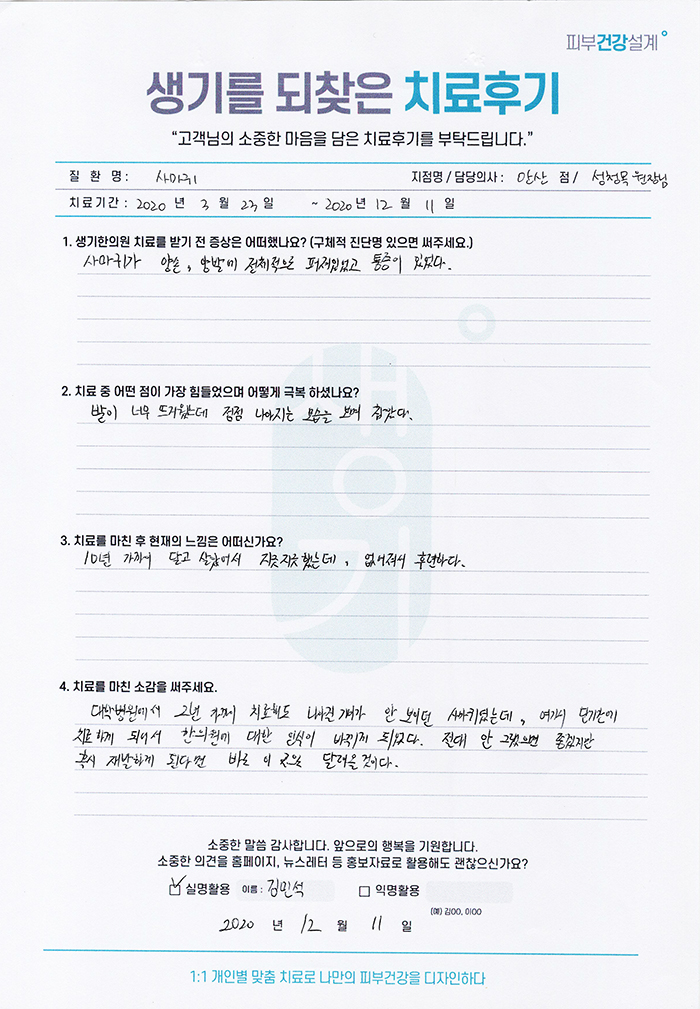 피부건강설계
생기를 되찾은 치료후기
“고객님의 소중한 마음을 담은 치료후기를 부탁드립니다.”
질 환 명 : 사마귀 지점명 / 담당의사 : 안산 점 / 성정목 원장님
치료기간 : 2020 년 3 월 23 일 ~ 2020 년 12 월 11 일
1. 생기한의원 치료를 받기 전 증상은 어떠했나요? (구체적 진단명 있으면 써주세요.)
사마귀가 양손, 양발에 전체적으로 퍼져있었고 통증이 있었다.
2. 치료 중 어떤 점이 가장 힘들었으며 어떻게 극복 하셨나요?
발이 너무 뜨거웠는데 점점 나아지는 모습을 보며 참았다.
3. 치료를 마친 후 현재의 느낌은 어떠신가요?
10년 가까이 달고 살았어서 지긋지긋했는데, 없어져서 후련하다.
4. 치료를 마친 소감을 써주세요.
대학병원에서 2년 가까이 치료해도 나아질 기미가 안 보이던 사마귀였는데, 여기서 단기간에
치료하게 되어서 한의원에 대한 인식이 바뀌게 되었다. 절대 안 그랬으면 좋겠지만
혹시 재발하게 된다면 바로 이 곳으로 달려올 것이다.
소중한 말씀 감사합니다. 앞으로의 행복을 기원합니다.
소중한 의견을 홈페이지, 뉴스레터 등 홍보자료로 활용해도 괜찮으신가요?
실명활용 이름 : 김민석 익명활용
(예) 김OO, 이OO
2020 년 12 월 11 일
1:1 개인별 맞춤 치료로 나만의 피부건강을 디자인하다
생기